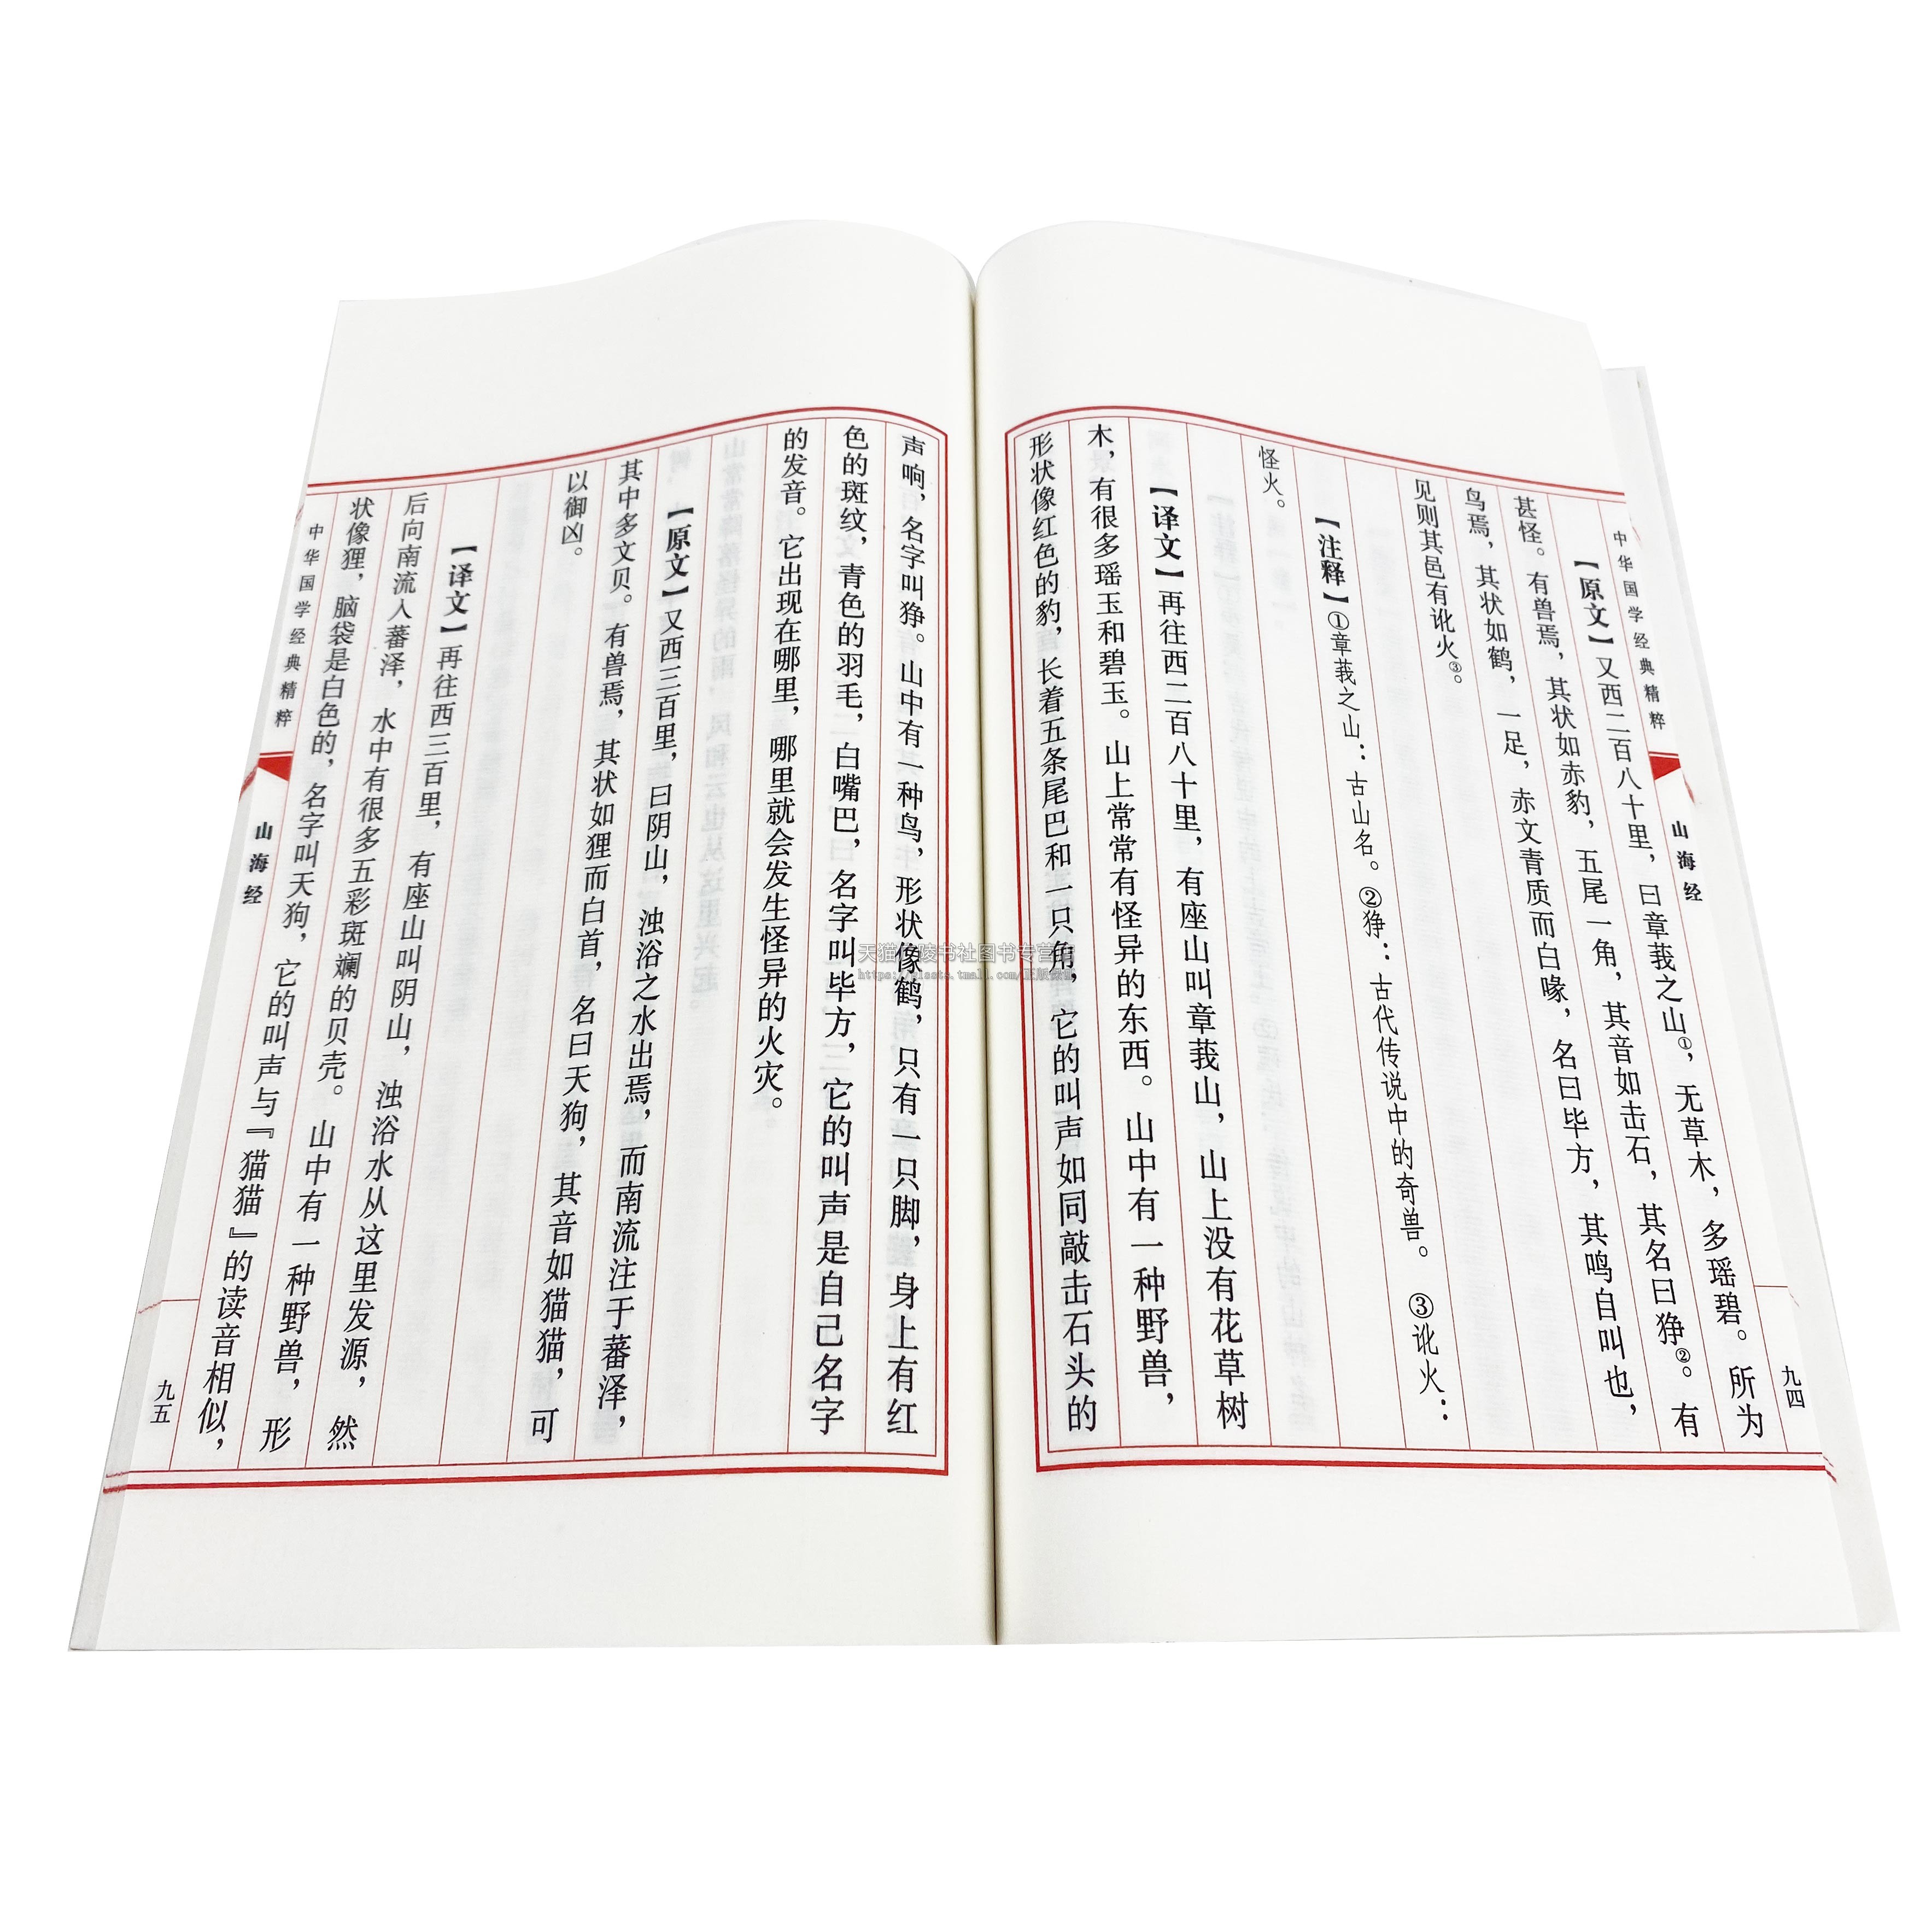 中华国学经典精粹
山海经
九四
【原文】又西二百八十里，曰章莪之山①，无草木，多瑶碧。所为
甚怪。有兽焉，其状如赤豹，五尾一角，其音如击石，其名曰狰②。有
鸟焉，其状如鹤，一足，赤文青质而白喙，名曰毕方，其鸣自叫也，
见则其邑有讹火③。
【注释】①章莪之山：古山名。②狰：古代传说中的奇兽。③讹火：
怪火。
【译文】再往西二百八十里，有座山叫章莪山，山上没有花草树
木，有很多瑶玉和碧玉。山上常常有怪异的东西。山中有一种野兽，
形状像红色的豹，长着五条尾巴和一只角，它的叫声如同敲击石头的
声响，名字叫狰。山中有一种鸟，形状像鹤，只有一只脚，身上有红
色的斑纹，青色的羽毛，白嘴巴，名字叫毕方，它的叫声是自己名字
的发音。它出现在哪里，哪里就会发生怪异的火灾。
【原文】又西三百里，曰阴山，浊浴之水出焉，而南流注于蕃泽，
其中多文贝。有兽焉，其状如狸而白首，名曰天狗，其音如猫猫，可
以御凶。
【译文】再往西三百里，有座山叫阴山，浊浴水从这里发源，然
后向南流入蕃泽，水中有很多五彩斑斓的贝壳。山中有一种野兽，形
状像狸，脑袋是白色的，名字叫天狗，它的叫声与『猫猫』的读音相似，
中华国学经典精粹
山海经
九五